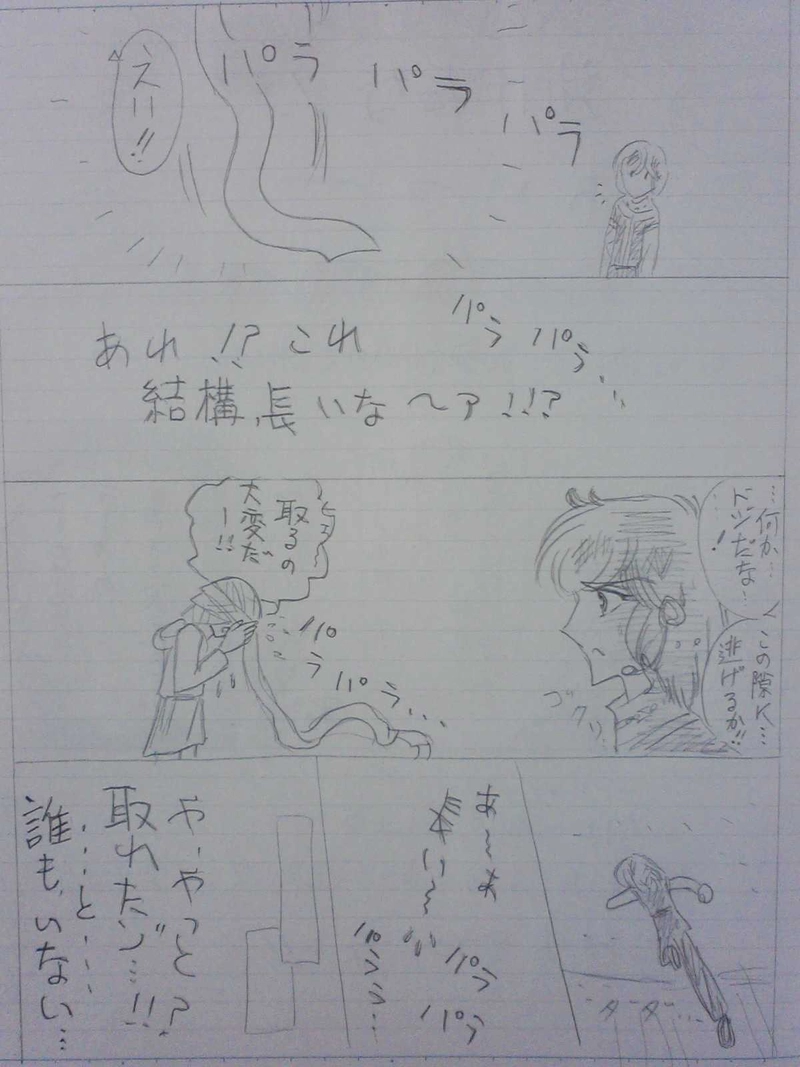 パラ
パラ
パラ
えい!!
パラ
パラ…
あれ!?これ
結構、長いな〜ァ!!?
…何か…
ドジだな…!
この隙に…
逃げるか!!
ゴクリ…
ヒェ〜
取るの
大変だ
ー!!
パラ
パラ…
タータ…
あ〜あ
長い〜
パラ
パラ
パラララ…
や、やっと?
取れたゾ…!!
…と…
誰も、いない…